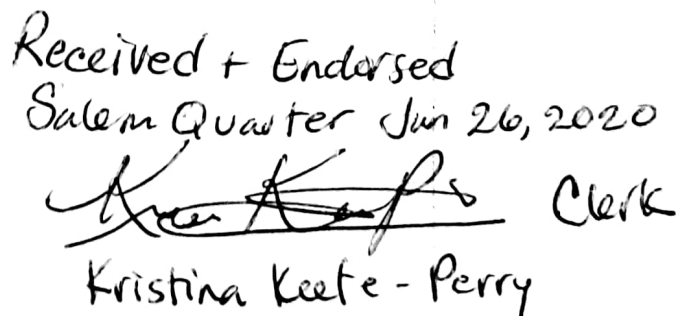 Received + Endorsed
Salem Quarter Jan 26, 2020
Clerk
Kristina Keefe-Perry